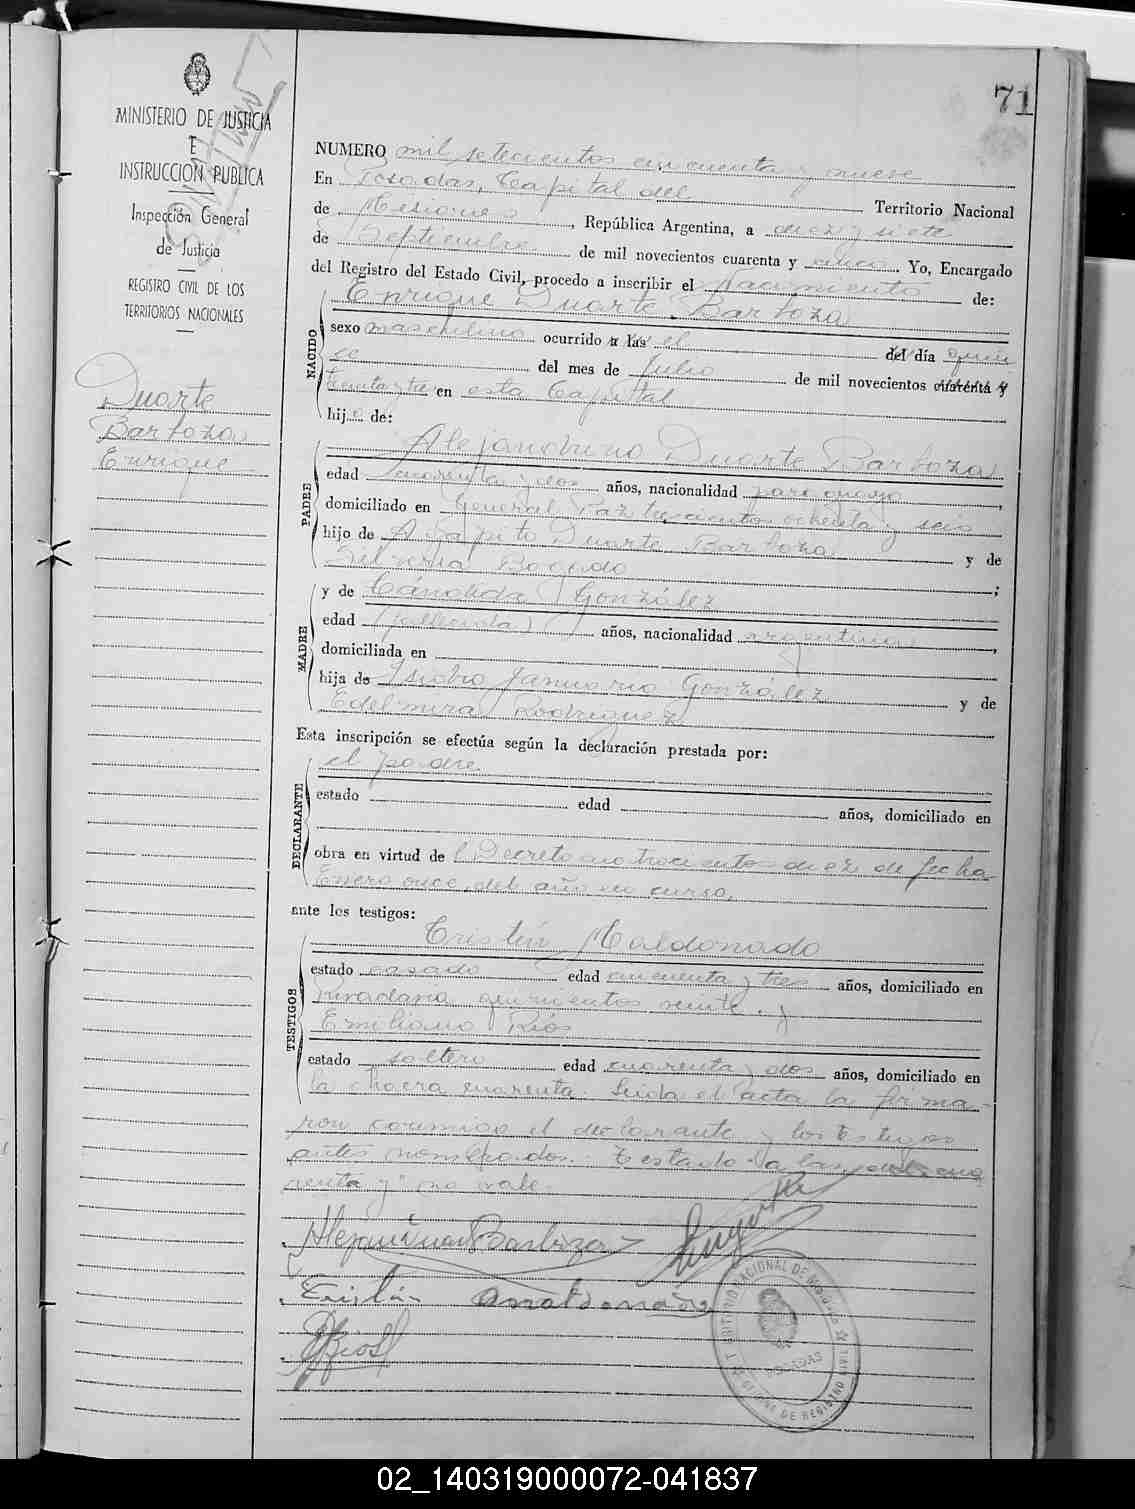 71
MINISTERIO DE JUSTICIA
E
INSTRUCCION PUBLICA
Inspección General
de Justicia
REGISTRO CIVIL DE LOS
TERRITORIOS NACIONALES
Duarte
Barboza
Enrique
NUMERO mil setecientos cincuenta y nueve
En Posadas, Capital del Territorio Nacional
de Misiones, República Argentina, a diez y siete
de Septiembre de mil novecientos cuarenta y cinco. Yo, Encargado
del Registro del Estado Civil, procedo a inscribir el Nacimiento de:
NACIDO
Enrique Duarte Barboza
sexo masculino ocurrido a las el del día quin
ce del mes de Julio de mil novecientos cuarenta y
treinta y tres en esta Capital
hijo de:
PADRE
Alejandrino Duarte Barboza
edad cuarenta y dos años, nacionalidad paraguaya,
domiciliado en General Paz trescientos ochenta y seis
hijo de Agapito Duarte Barboza y de
Silveria Bogado;
MADRE
y de Cándida González
edad (fallecida) años, nacionalidad argentina,
domiciliada en
hija de Isidro Januario González y de
Edelmira Rodriguez
Esta inscripción se efectúa según la declaración prestada por:
DECLARANTE
el padre
estado edad años, domiciliado en
obra en virtud del Decreto cuatrocientos diez de fecha
Enero once, del año en curso,
ante los testigos:
TESTIGOS
Tristán Maldonado
estado casado edad cincuenta y tres años, domiciliado en
Rivadavia quinientos veinte. y
Emiliano Ríos
estado soltero edad cuarenta y dos años, domiciliado en
la chacra cuarenta. Leida el acta la firma-
ron conmigo el declarante y los testigos
antes nombrados. Testado "a las, del, cua
renta y" no vale.
Tristán Maldonado
ERios
TERRITORIO NACIONAL DE MISIONES
POSADAS
OFICINA DE REGISTRO CIVIL
02_140319000072-041837